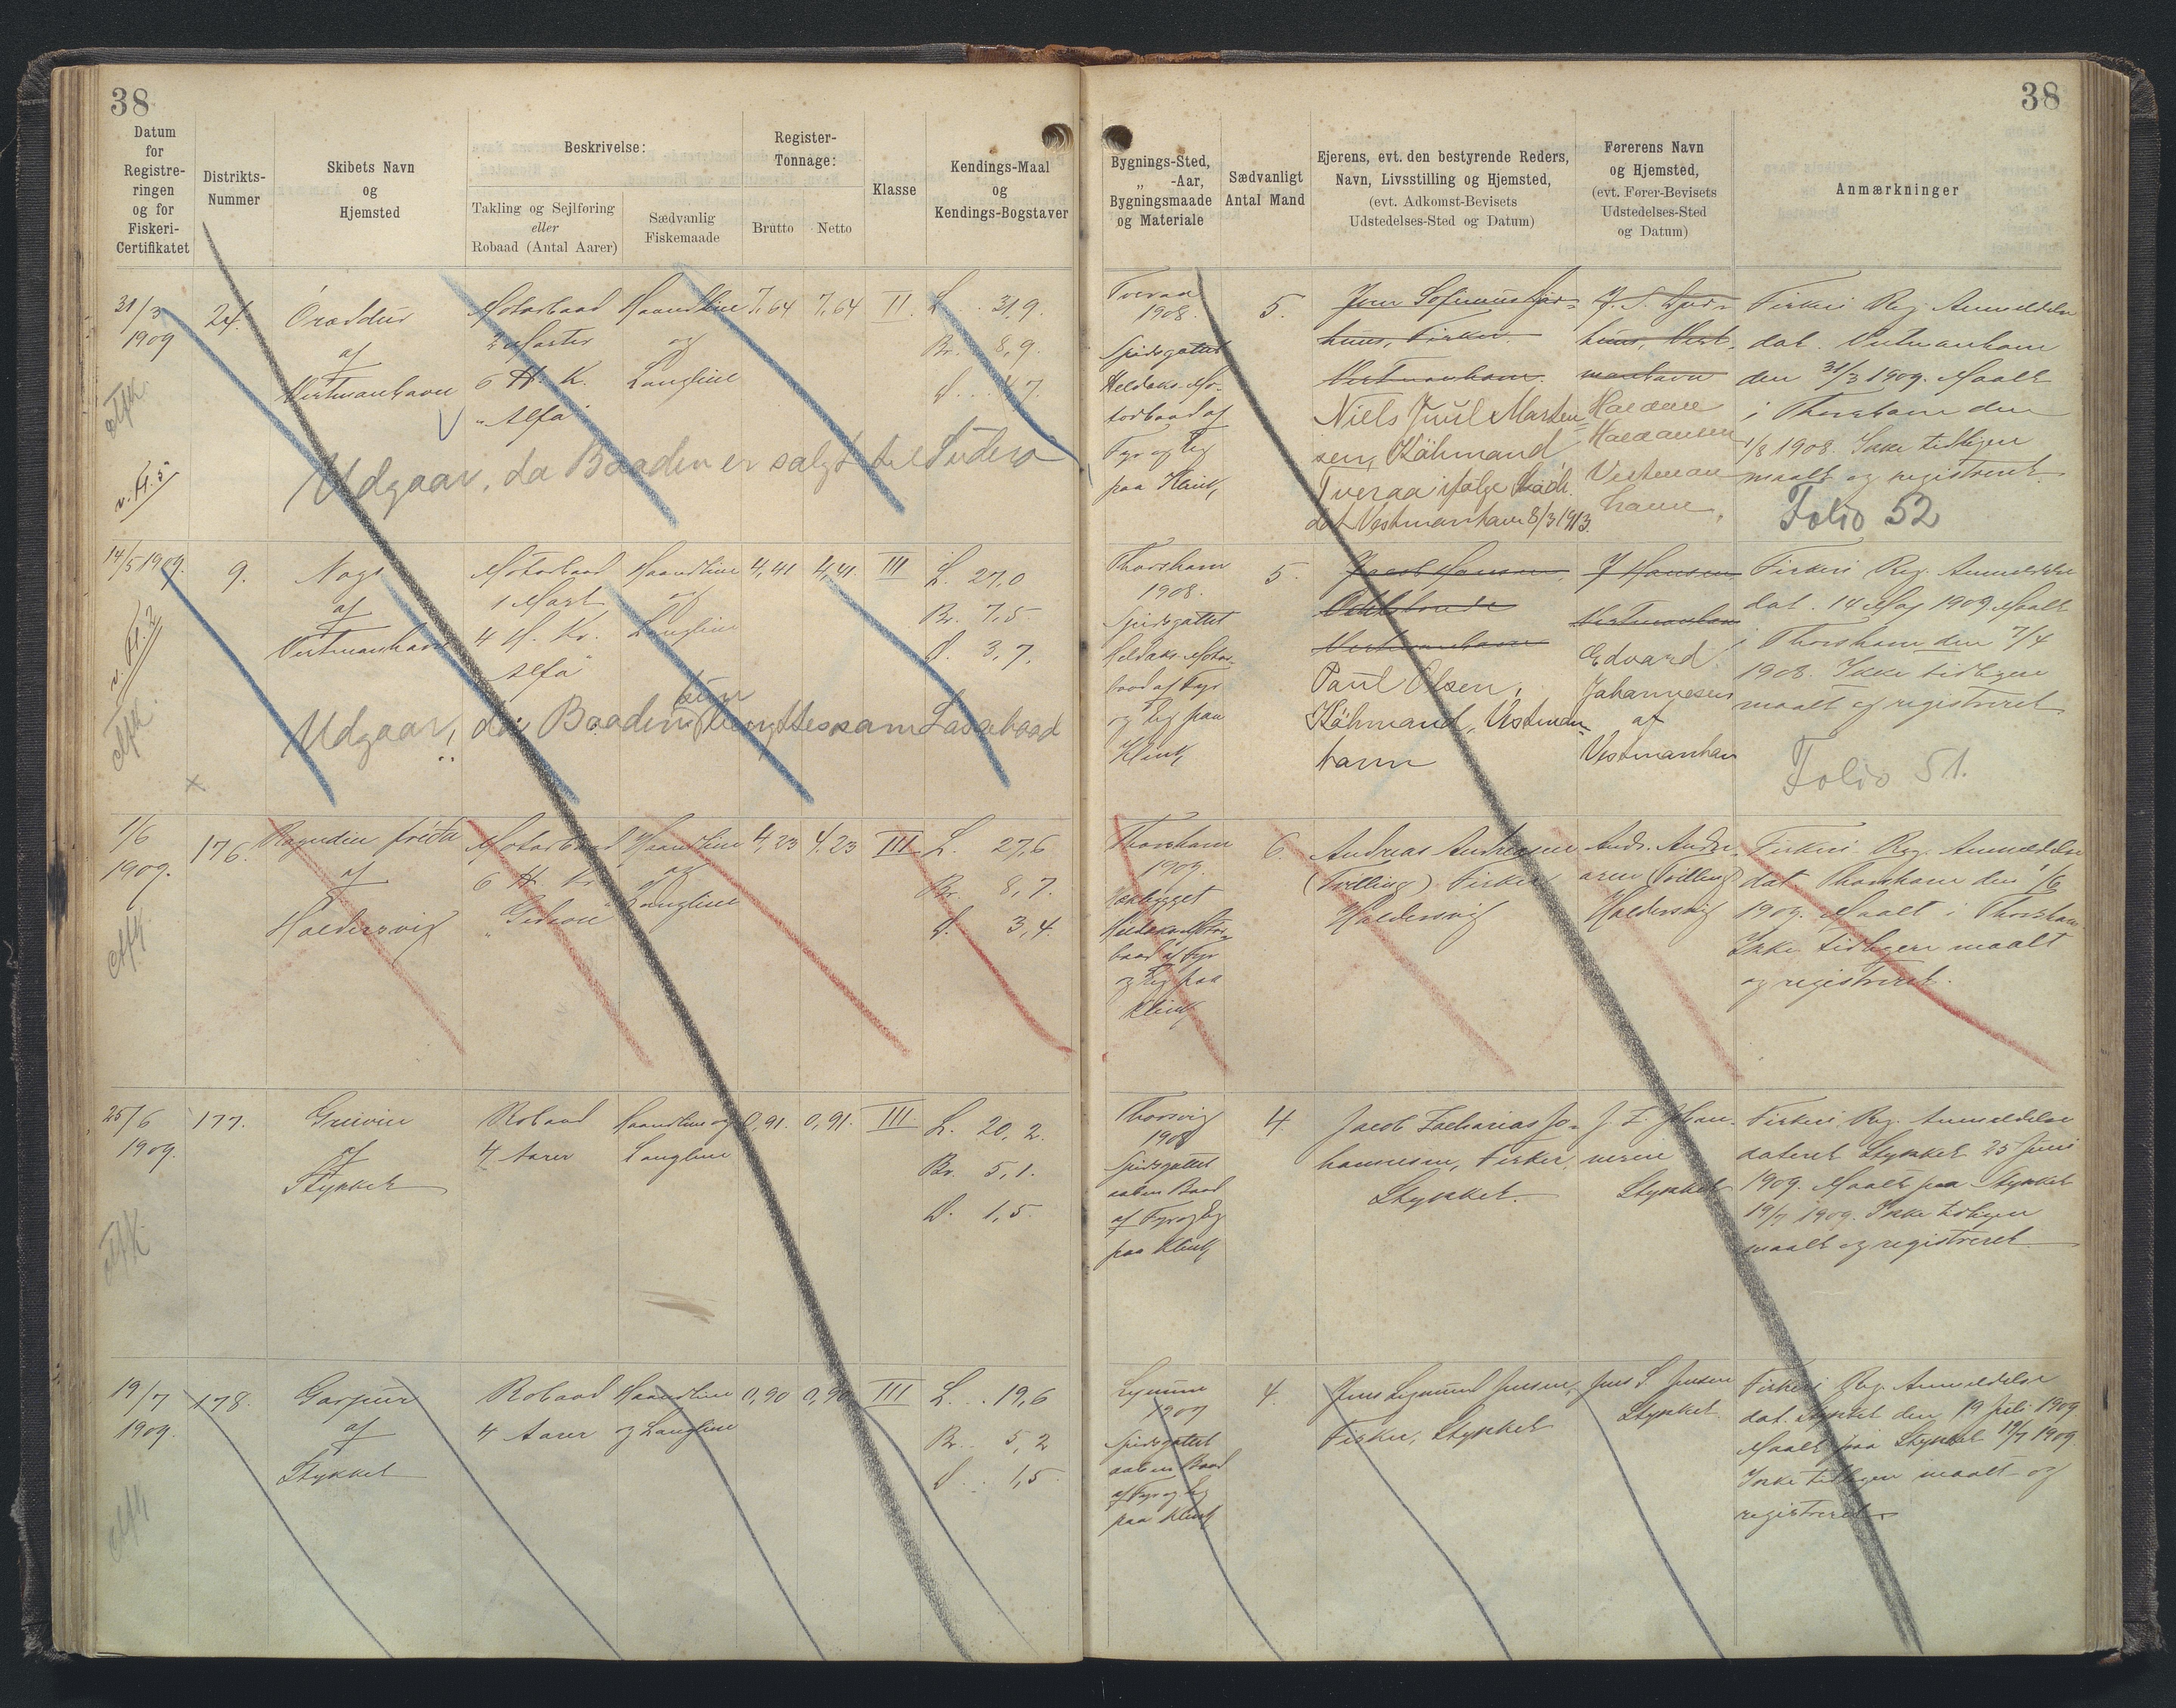 38
38
Datum
for
Registre-
ringen
og for
Fiskeri-
Certifikatet
Distrikts-
Nummer
Skibets Navn
og
Hjemsted
Beskrivelse:
Takling og Sejlføring
eller
Robaad (Antal Aarer)
Sædvanlig
Fiskemaade
Register-
Tonnage:
Brutto
Netto
Klasse
Kendings-Maal
og
Kendings-Bogstaver
Bygnings-Sted,
„ -Aar,
Bygningsmaade
og Materiale
Sædvanligt
Antal Mand
Ejerens, evt. den bestyrende Reders,
Navn, Livsstilling og Hjemsted,
(evt. Adkomst-Bevisets
Udstedelses-Sted og Datum)
Førerens Navn
og Hjemsted,
(evt. Fører-Bevisets
Udstedelses-Sted
og Datum)
Anmærkninger
31/3
1909
24.
af
Vestmanhavn
Motorbaad
2 Master
6 H. K.
"Alfa"
Haandline
og
Langline
7,64
7,64
II
L. . . 31,9.
Br. 8,9.
D. . . 4,7.
Tveraa
1908.
Spidsgattet
Heldæks Mo-
torbaad af
Fyr og Eg
paa Klink,
5.
huus, Fisker
Vestmanhavn.
Niels Juul Marten-
sen, Købmand
Tveraa ifølge
dat Vestmanhavn 8/3 1913.
huus, Vest-
manhavn
Vestman
havn.
Fiskeri Reg. Anmeldelse
dat. Vestmanhavn
den 31/3 1909. Maalt
i Thorshavn den
1/8 1908. Ikke tidligere
maalt og registreret.
Folio 52
Udgaar, da Baaden er solgt til Suderø
14/5 1909.
9.
af
Vestmanhavn
Motorbaad
1 Mast
4 H. K.
Alfa"
Haandline
og
Langline
4,41
4,41.
III
L. 27,0
Br. 7,5
D. 3,7.
Thorshavn
1908.
Spidsgattet
Heldæks Motor-
baad af Fyr
og Eg paa
Klink,
5.
Jacob Hansen,
Vestmanhavn
Paul Olsen,
Købmand, Vestman-
havn
J Hansen
Vestmanhavn
Edvard
Johannesen
af
Vestmanhavn
Fiskeri Reg. Anmeldelse
dat. 14 Maj 1909 Maalt
i Thorshavn den 7/4
1908. Ikke tidligere
maalt og registreret.
Folio 51.
Udgaar, da Baaden kun benyttes som Lastebaad
1/6
1909.
176.
af
Haldersvig
Motorbaad
6 H. K.
"Gideon"
Haandline
og
Langline
4,23
4,23
III
L. 27,6
Br. 8,7.
D. 3,4.
Thorshavn
1909.
baad af Fyr
og Eg paa
Klink,
6.
Andreas Andreasen
(Trilling) Fisker
Haldersvig
Andr. Andre-
asen (Trilling)
Haldersvig
Fiskeri Reg. Anmeldelse
dat. Thorshavn den 1/6
1909. Maalt i Thorshavn.
Ikke tidligere maalt
og registreret.
25/6
1909.
177.
af
Stykket
Robaad
4 Aarer
Haandline og
Langline
0,91.
0,91.
III
L. 20,2.
Br. 5,1.
D. 1,5.
Thorsvig
Spidsgattet
aaben Baad
af Fyr og Eg
paa Klink,
4.
Jacob Zacharias Jo-
hannesen, Fisker,
Stykket.
J. Z. Johan-
nesen
Stykket
Fiskeri Reg. Anmeldelse
dateret Stykket 25 Juni
1909. Maalt paa Stykket
19/7 1909. Ikke tidligere
maalt og registreret
19/7
1909.
178.
af
Stykket
Robaad
4 Aarer
Haandline
og Langline
0,90
0,90
III
L. . . 19,6
Br. . 5,2
D. . . 1,5.
1909
Spidsgattet
aaben Baad
af Fyr og Eg
paa Klink,
4.
Jens Sigmund Jensen,
Fisker, Stykket
Jens S. Jensen
Stykket.
Fiskeri Reg. Anmeldelse
dat. Stykket den 19 Juli 1909
Maalt paa Stykket 19/7 1909.
Ikke tidligere maalt og
registreret